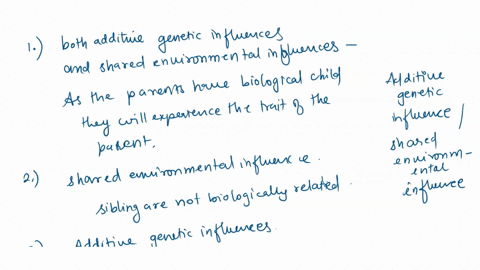 1.) both additive genetic influences
and shared environmental influences –
As the parents have biological child
they will experience the trait of the
parent.
2.) shared environmental influence.
sibling are not biologically related.
Additive genetic influences.
Additive
genetic
influence /
shared
environm-
ental
influence